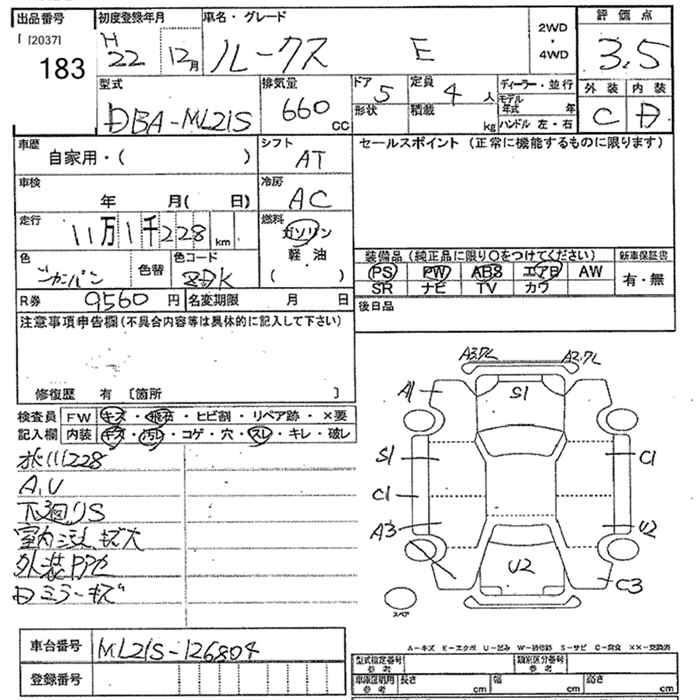 出品番号 初度登録年月 車名・グレード 2WD ・ 4WD 評価点
183 H 22 12月 ルークス E 3.5
型式 排気量 ドア 5 定員 4人 ディーラー・並行 外装 内装
DBA-ML21S 660 CC 形状 積載 kg モデル年式 年 C D
ハンドル 左・右
車歴 シフト セールスポイント (正常に機能するものに限ります)
自家用・( ) AT
車検 冷房
年 月( 日) AC
走行 燃料
11万1千228 km ガソリン
軽油
( )
色 色替 色コード
装備品 (純正品に限り○をつけてください) 新車保証書
PS PW ABS エアB AW 有・無
SR ナビ TV カワ
R券 9560 円 名変期限 月 日 後日品
注意事項申告欄(不具合内容等は具体的に記入して下さい)
修復歴 有 〔箇所 〕
検査員 FW キズ・飛石・ヒビ割・リペア跡・×要
記入欄 内装 キズ・汚れ・コゲ・穴・スレ・キレ・破レ
A,U
下廻りS
ミラーキズ
A1
S1
S1
C1
C1
A3
U2
U2
C3
スペア
車台番号 ML21S-126804
登録番号
A-キズ E-エクボ U-凹み W-補修跡 S-サビ C-腐食 ××-交換済
型式指定番号 参考 類別区分番号 参考
車庫証明用 参考 長さ cm 幅 cm 高さ cm